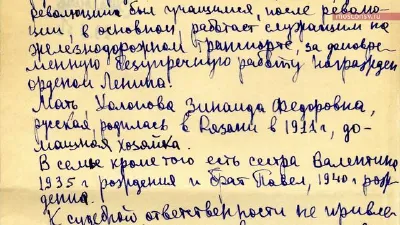 moscowtv.ru
революции был учащимся, после револю-
ции, в основном, работает служащим на
железнодорожном транспорте, за долговре-
менную безупречную работу награжден
орденом Ленина.
Мать Холопова Зинаида Федоровна,
русская, родилась в Рязани в 1911 г, до-
машная хозяйка.
В семье кроме того есть сестра Валентина
1935 г рождения и брат Павел, 1940 рож-
дения.
К судебной ответственности не привле-